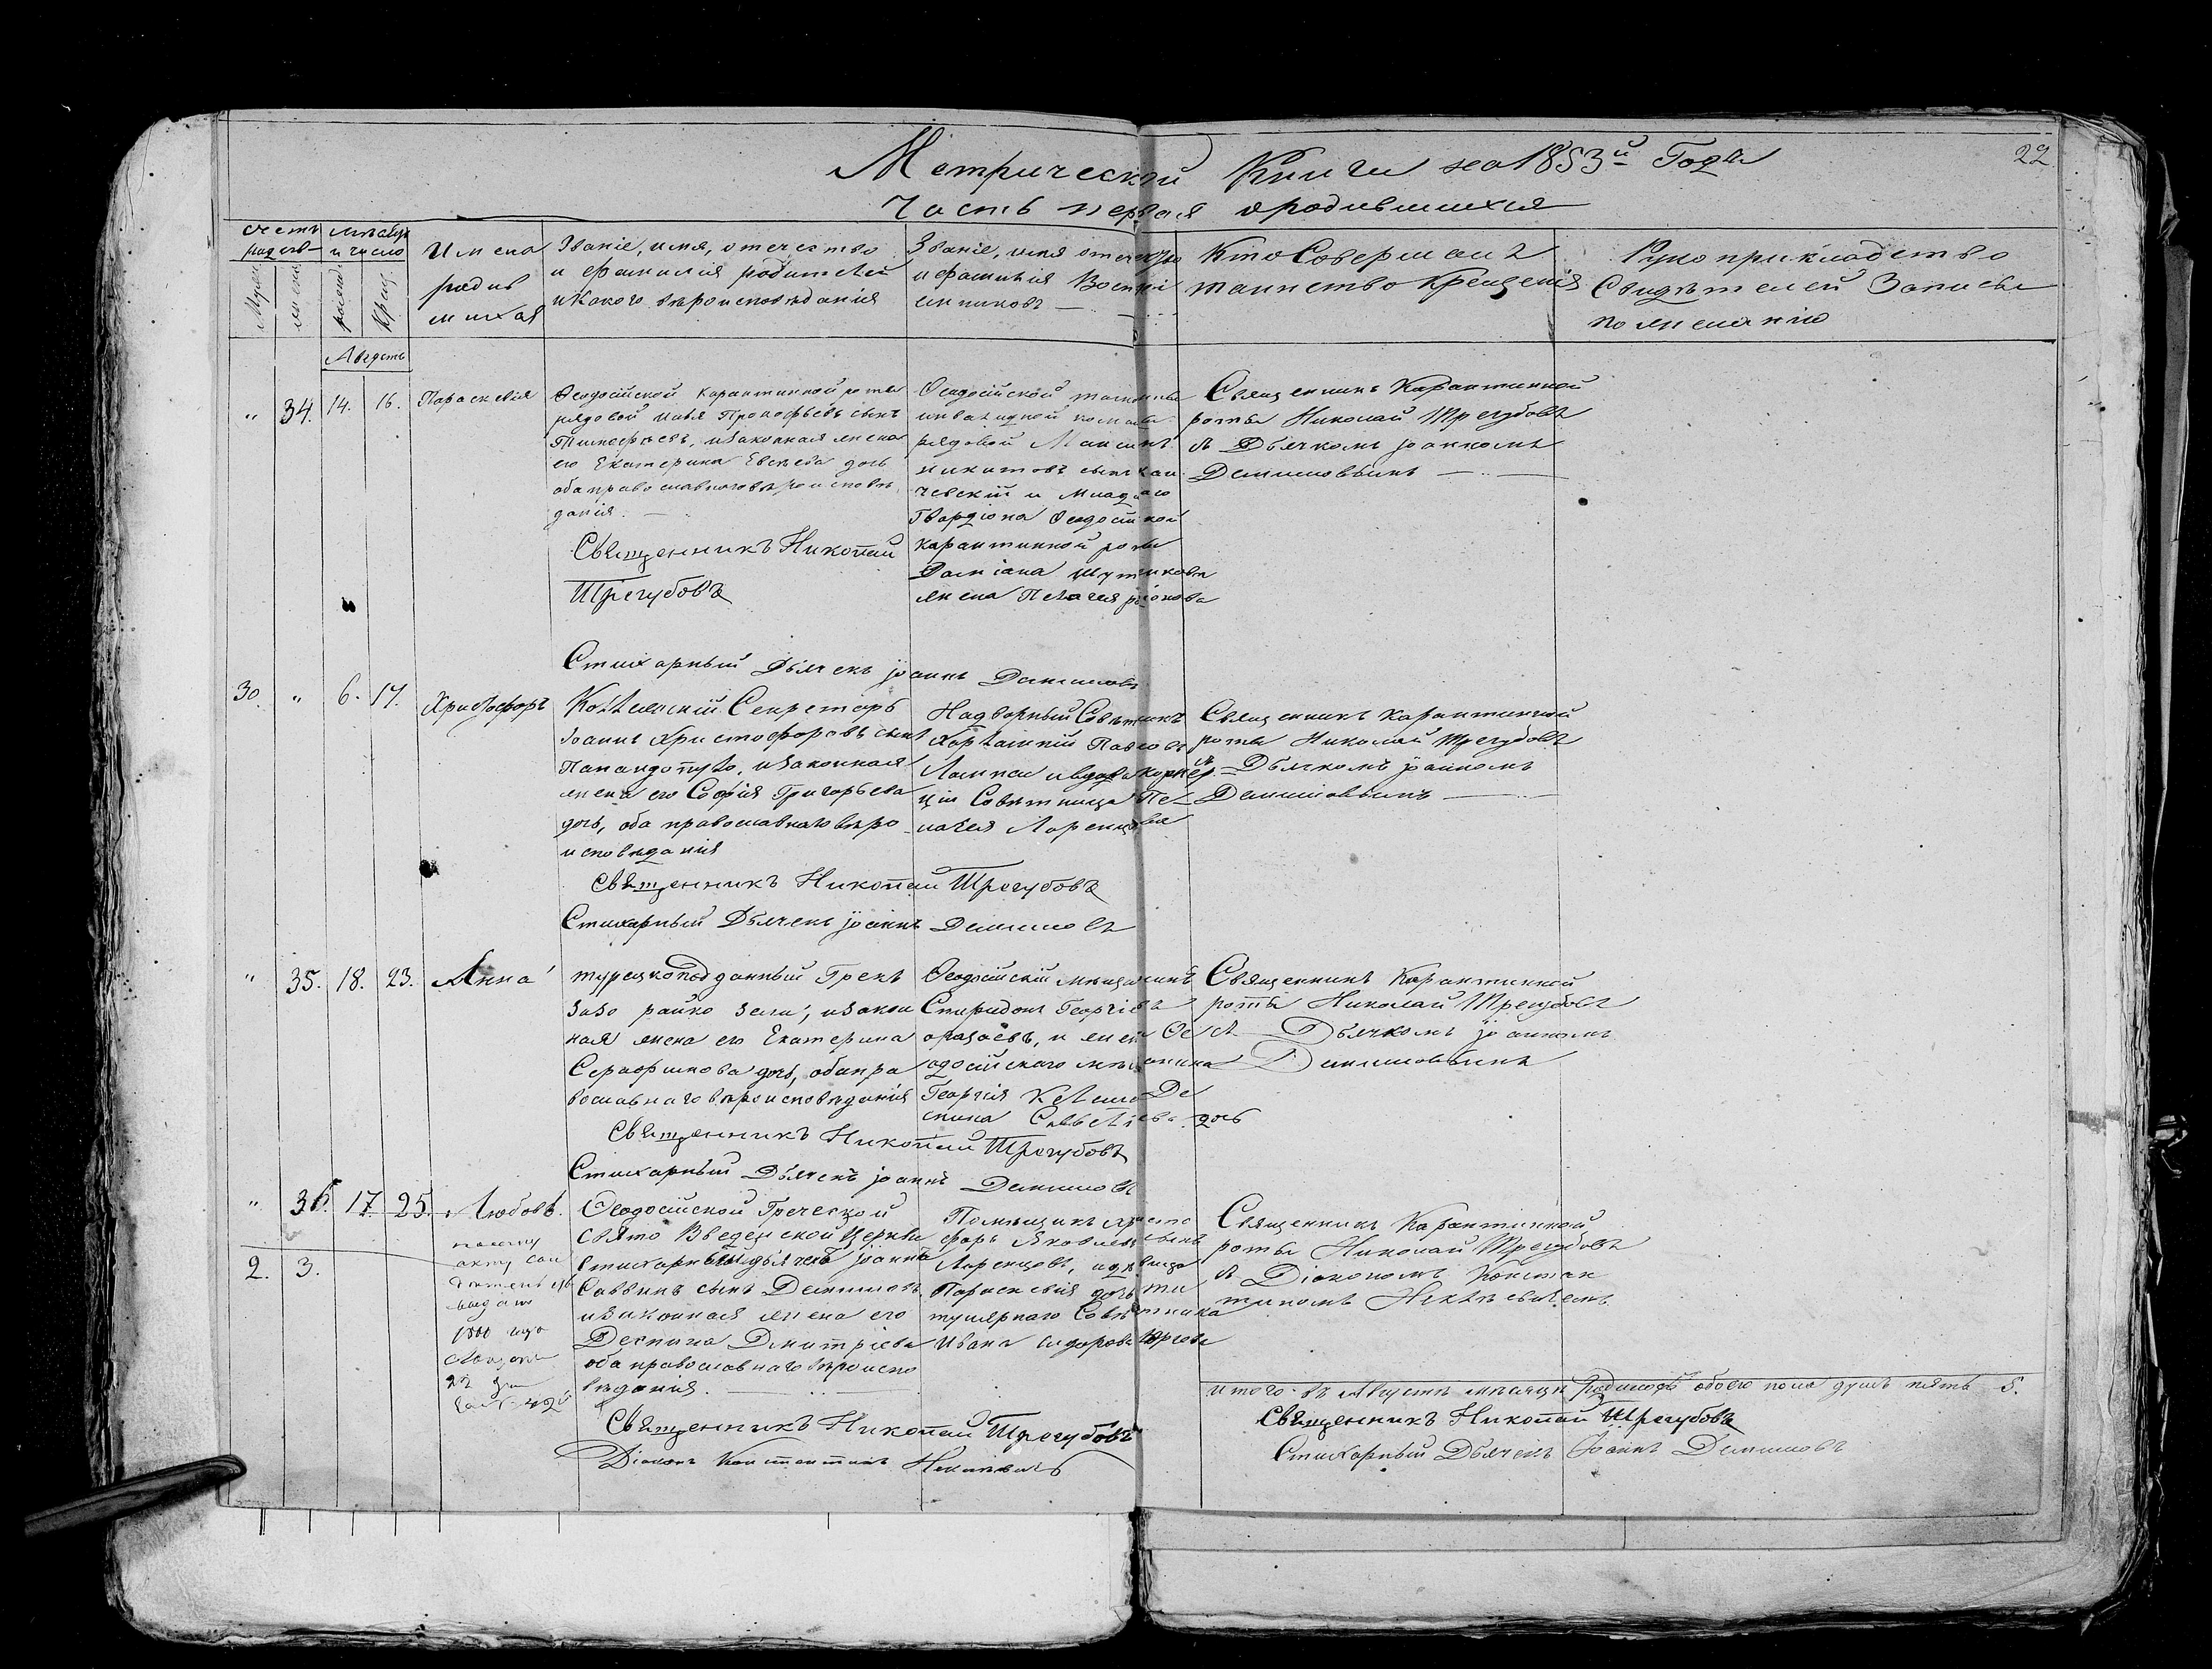 22
Метрической Книги на 1853й Годъ
Часть первая о родившихся
Счетъ родив-
Мѣсяцъ и число
Имена родившихся
Званіе, имя, отечество
и фамилія родителей
и Какого вѣроисповѣданія
Званіе, имя отечество
и фамилія Воспрі
емниковъ
Кто Совершалъ
таинство Крещенія
Рукоприкладство
Свидѣтелей Записи
по желанію
Мужес
женс
рожден
Крещ
Августъ
" 34. 14. 16. Параскевія
Ѳеодосійской Карантинной роты
рядовой Илья Прокофьевъ сынъ
Тимофѣевъ, и законная жена
его Екатерина Евсѣева дочь
оба православнаго вѣроисповѣ
данія.
Священникъ Николай
Трегубовъ
Ѳеодосійской
инвалидной команды
рядовой Максимъ
Никитовъ сынъ
чевскій и Младшаго
Гвардіона Ѳеодосійской
карантинной роты
Даміана
жена Пелагея
Священникъ Карантинной
роты Николай Трегубовъ
съ Дьячкомъ Іоанномъ
Демишовымъ
Стихарный Дьячекъ Іоаннъ Демишовъ
30. " 6. 17. Христофоръ
Коллежскій Секретарь
Іоаннъ Христофоровъ сынъ
Папандопуло, и законная
жена его Софія Григорьева
дочь, оба православнаго вѣро
исповѣданія
Надворный Совѣтникъ
Харлампій Павловъ
Лампси и вдова
ціи Совѣтница Пе-
лагея Ларенцова
Священникъ Карантинной
роты Николай Трегубовъ
съ Дьячкомъ Іоанномъ
Демишовымъ
Священникъ Николай Трегубовъ
Стихарный Дьячекъ Іоаннъ Демишовъ
" 35. 18. 23. Анна
турецкоподданный Грекъ
и закон
ная жена его Екатерина
Серафимова дочь, оба пра
вославнаго вѣроисповѣданія
Ѳеодосійскій мѣщанинъ
Спиридонъ Георгіевъ
и жена Ѳе
одосійскаго мѣщанина
Георгія Де
спина дочь
Священникъ Карантинной
роты Николай Трегубовъ
съ Дьячкомъ Іоанномъ
Демишовымъ
Священникъ Николай Трегубовъ
Стихарный Дьячекъ Іоаннъ Демишовъ
" 36. 17. 25. Любовь.
2. 3.
Ѳеодосійской Греческой
свято Введенской Церкви
стихарный дьячекъ Іоаннъ
Саввинъ сынъ Демишовъ
и законная жена его
Деспина Дмитріева
оба православнаго вѣроиспо
вѣданія.
Помѣщикъ Христо
форъ Яковлевъ сынъ
Ларенцовъ, и дѣвица
Параскевія дочь ти
тулярнаго Совѣтника
Ивана Сидорова
Священникъ Карантинной
роты Николай Трегубовъ
съ Діакономъ Констан
тиномъ
Священникъ Николай Трегубовъ
Діаконъ Константинъ
Итого въ Августѣ мѣсяцѣ родилось обоего пола душъ пять 5.
Священникъ Николай Трегубовъ
Стихарный Дьячекъ Іоаннъ Демишовъ